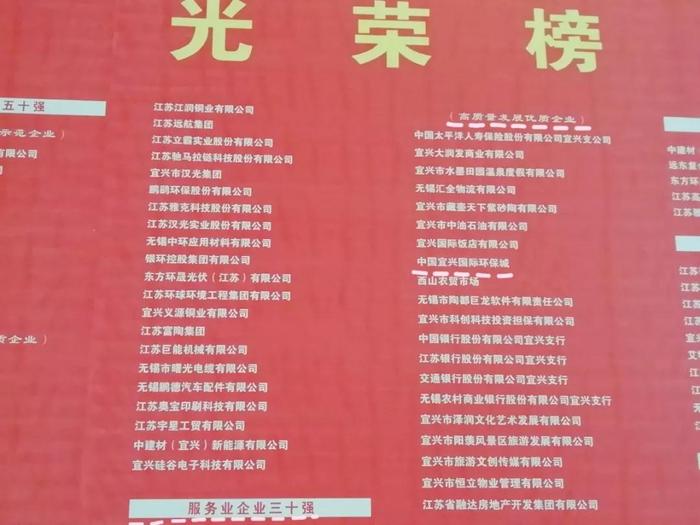 光荣榜
五十强
示范企业）
有限公司
江苏江润铜业有限公司
江苏远航集团
江苏立霸实业股份有限公司
江苏驰马拉链科技股份有限公司
宜兴市汉光集团
鹏鹞环保股份有限公司
江苏雅克科技股份有限公司
江苏汉光实业股份有限公司
无锡中环应用材料有限公司
银环控股集团有限公司
东方环晟光伏（江苏）有限公司
江苏环球环境工程集团有限公司
宜兴义源铜业有限公司
江苏富陶集团
江苏巨能机械有限公司
无锡市曙光电缆有限公司
无锡鹏德汽车配件有限公司
江苏奥宝印刷科技有限公司
江苏宇星工贸有限公司
中建材（宜兴）新能源有限公司
宜兴硅谷电子科技有限公司
服务业企业三十强
（高质量发展优质企业）
中国太平洋人寿保险股份有限公司宜兴支公司
宜兴大润发商业有限公司
宜兴市水墨田园温泉度假有限公司
无锡汇全物流有限公司
宜兴市藏壶天下紫砂陶有限公司
宜兴市中油石油有限公司
宜兴国际饭店有限公司
中国宜兴国际环保城
西山农贸市场
无锡市陶都巨龙软件有限责任公司
宜兴市科创科技投资担保有限公司
中国银行股份有限公司宜兴支行
江苏银行股份有限公司宜兴支行
交通银行股份有限公司宜兴支行
无锡农村商业银行股份有限公司宜兴支行
宜兴市泽润文化艺术发展有限公司
宜兴市阳羡风景区旅游发展有限公司
宜兴市旅游文创传媒有限公司
宜兴市恒立物业管理有限公司
江苏省融达房地产开发集团有限公司
中建材（
远东复
东方环
江苏